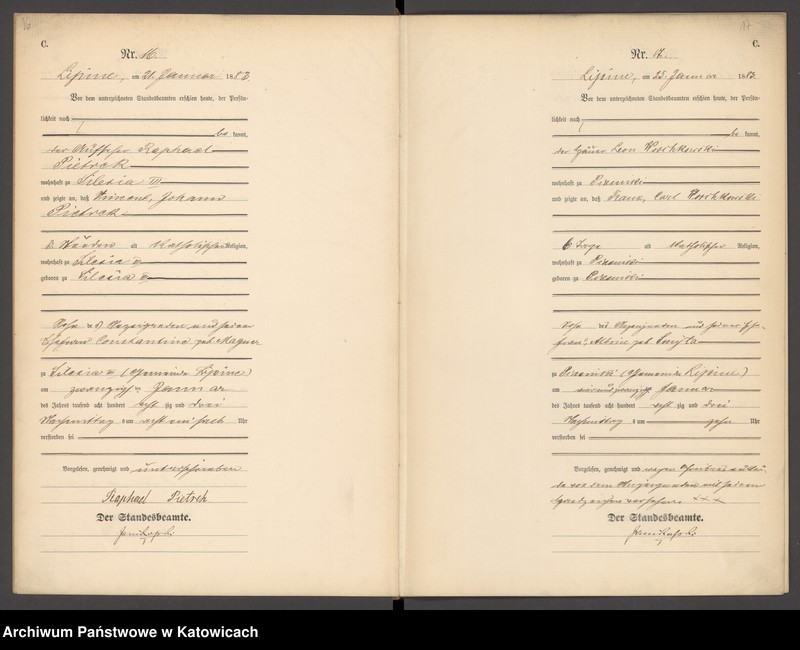 16
C.
Nr. 16.
Lipine, am 21 Januar 1883.
Vor dem unterzeichneten Standesbeamten erschien heute, der Persön-
lichkeit nach
be kannt,
der Aufseher Raphael
Pietrek
wohnhaft zu Silesia III
und zeigte an, daß Vincent, Johann
Pietrek
katholischer Religion,
wohnhaft zu Silesia III
geboren zu Silesia III
Sohn des Anzeigenden und seiner
Ehefrau Constantine geb.
zu Silesia III (Gemeinde Lipine)
am zwanzigsten Januar
des Jahres tausend acht hundert acht zig und drei
Nachmittag s um acht ein halb Uhr
verstorben sei
Vorgelesen, genehmigt und unterschrieben
Raphael Pietrek
Der Standesbeamte.
17
C.
Nr. 17.
Lipine, am 25. Januar 1883.
Vor dem unterzeichneten Standesbeamten erschien heute, der Persön-
lichkeit nach
be kannt,
der Häuer Leon
wohnhaft zu Piasniki
und zeigte an, daß Franz, Carl
6 Tage alt katholischer Religion,
wohnhaft zu Piasniki
geboren zu Piasniki
Sohn des Anzeigenden und seiner Ehe-
frau Albine geb.
zu Piasniki (Gemeinde Lipine)
am Januar
des Jahres tausend acht hundert acht zig und drei
Nachmittag s um zehn Uhr
verstorben sei
Vorgelesen, genehmigt und wegen Schreibensunkun-
de von dem Anzeigenden mit seinem
Handzeichen versehen. +++
Der Standesbeamte.
Archiwum Państwowe w Katowicach